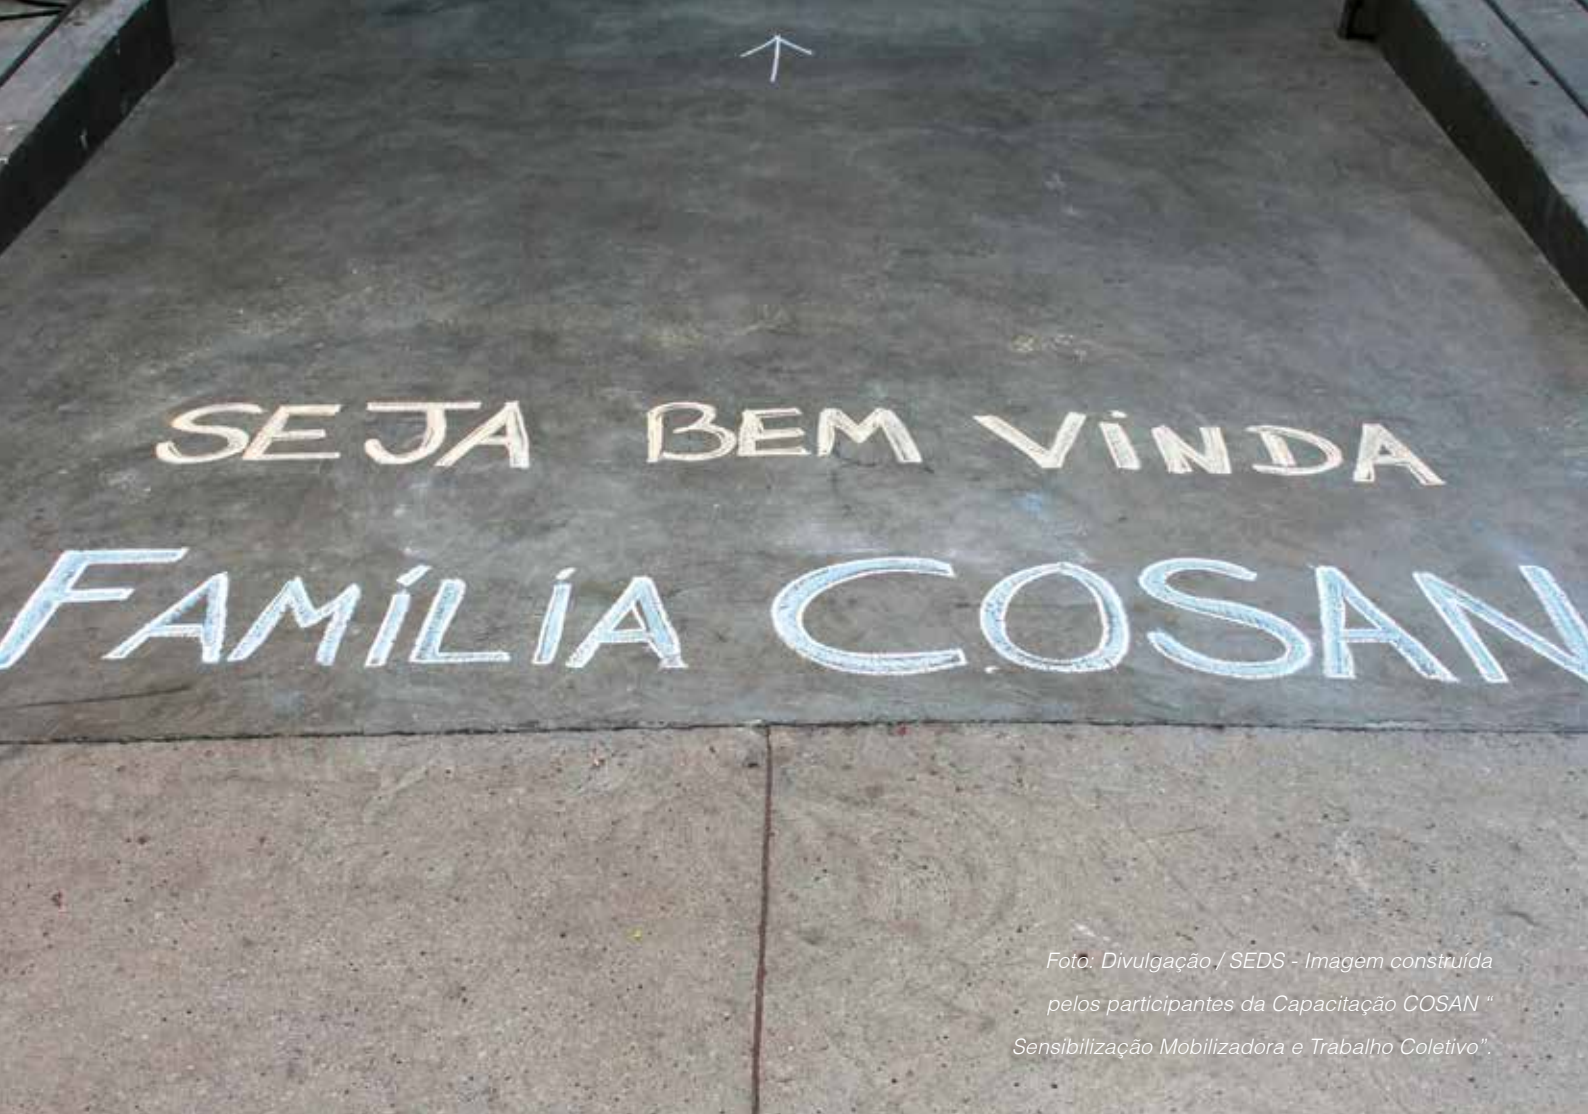 SEJA BEM VINDA
FAMÍLIA COSAN
Foto: Divulgação / SEDS - Imagem construída
pelos participantes da Capacitação COSAN “
Sensibilização Mobilizadora e Trabalho Coletivo”.